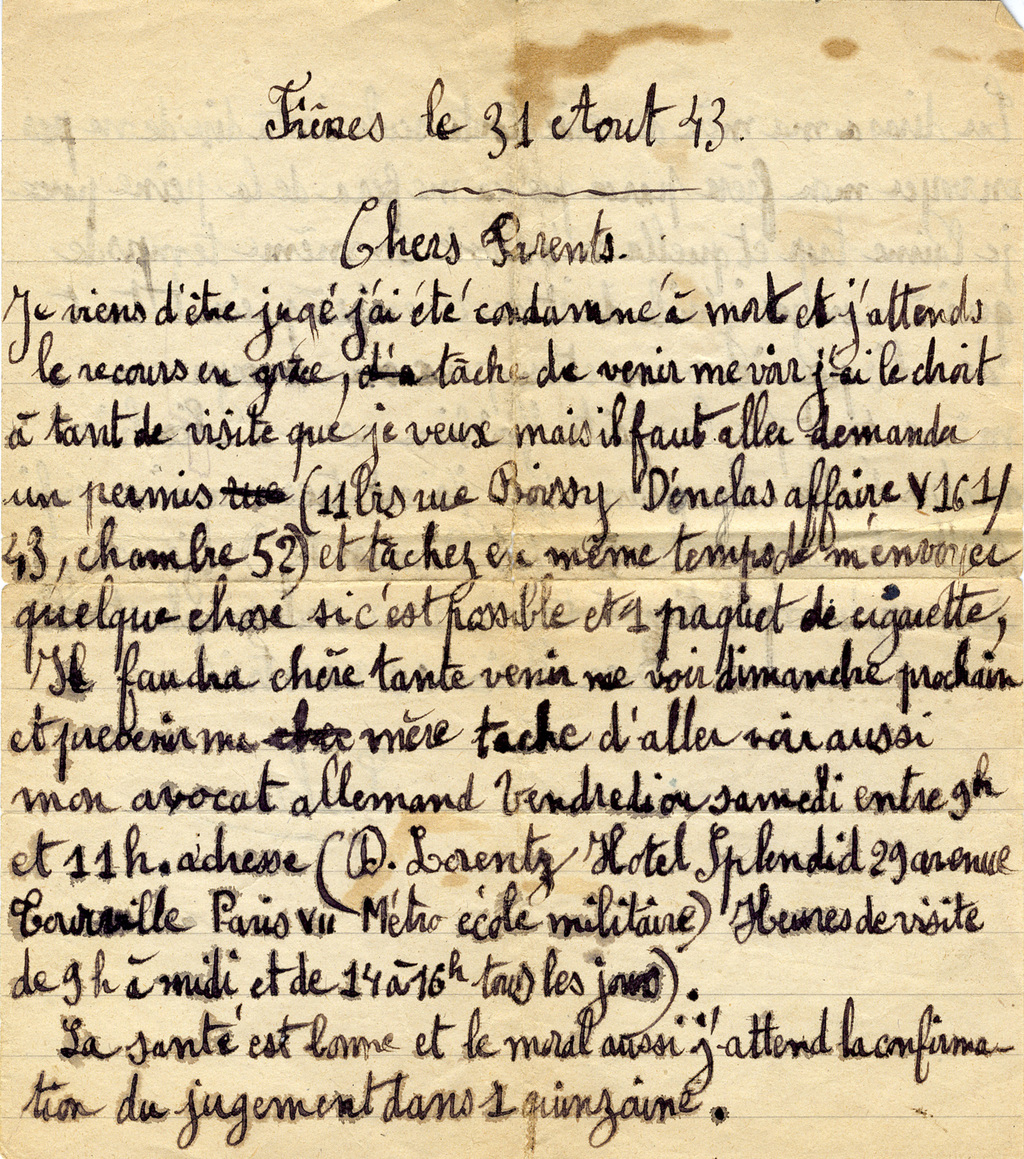 Frênes le 31 Aout 43.
Chers Parents.
Je viens d'être jugé j'ai été condamné à mort et j'attends
le recours en grâce, d'a tâche de venir me voir j'ai le droit
à tant de visite que je veux mais il faut aller demander
un permis rue (11 bis rue Boissy D'énglas affaire V 161/
43, chambre 52) et tâchez en même temps de m'envoyer
quelque chose si c'est possible et 1 paquet de cigarette,
Il faudra chère tante venir me voir dimanche prochain
et prevenir ma mère tache d'aller voir aussi
mon avocat allemand Vendredi ou samedi entre 9h
et 11h. adresse (D. Lorentz Hotel Splendid 29 avenue
Tourville Paris VII Métro école militaire) Heures de visite
de 9h à midi et de 14 à 16h tous les jours).
La santé est bonne et le moral aussi j'attend la confirma-
tion du jugement dans 1 quinzaine.